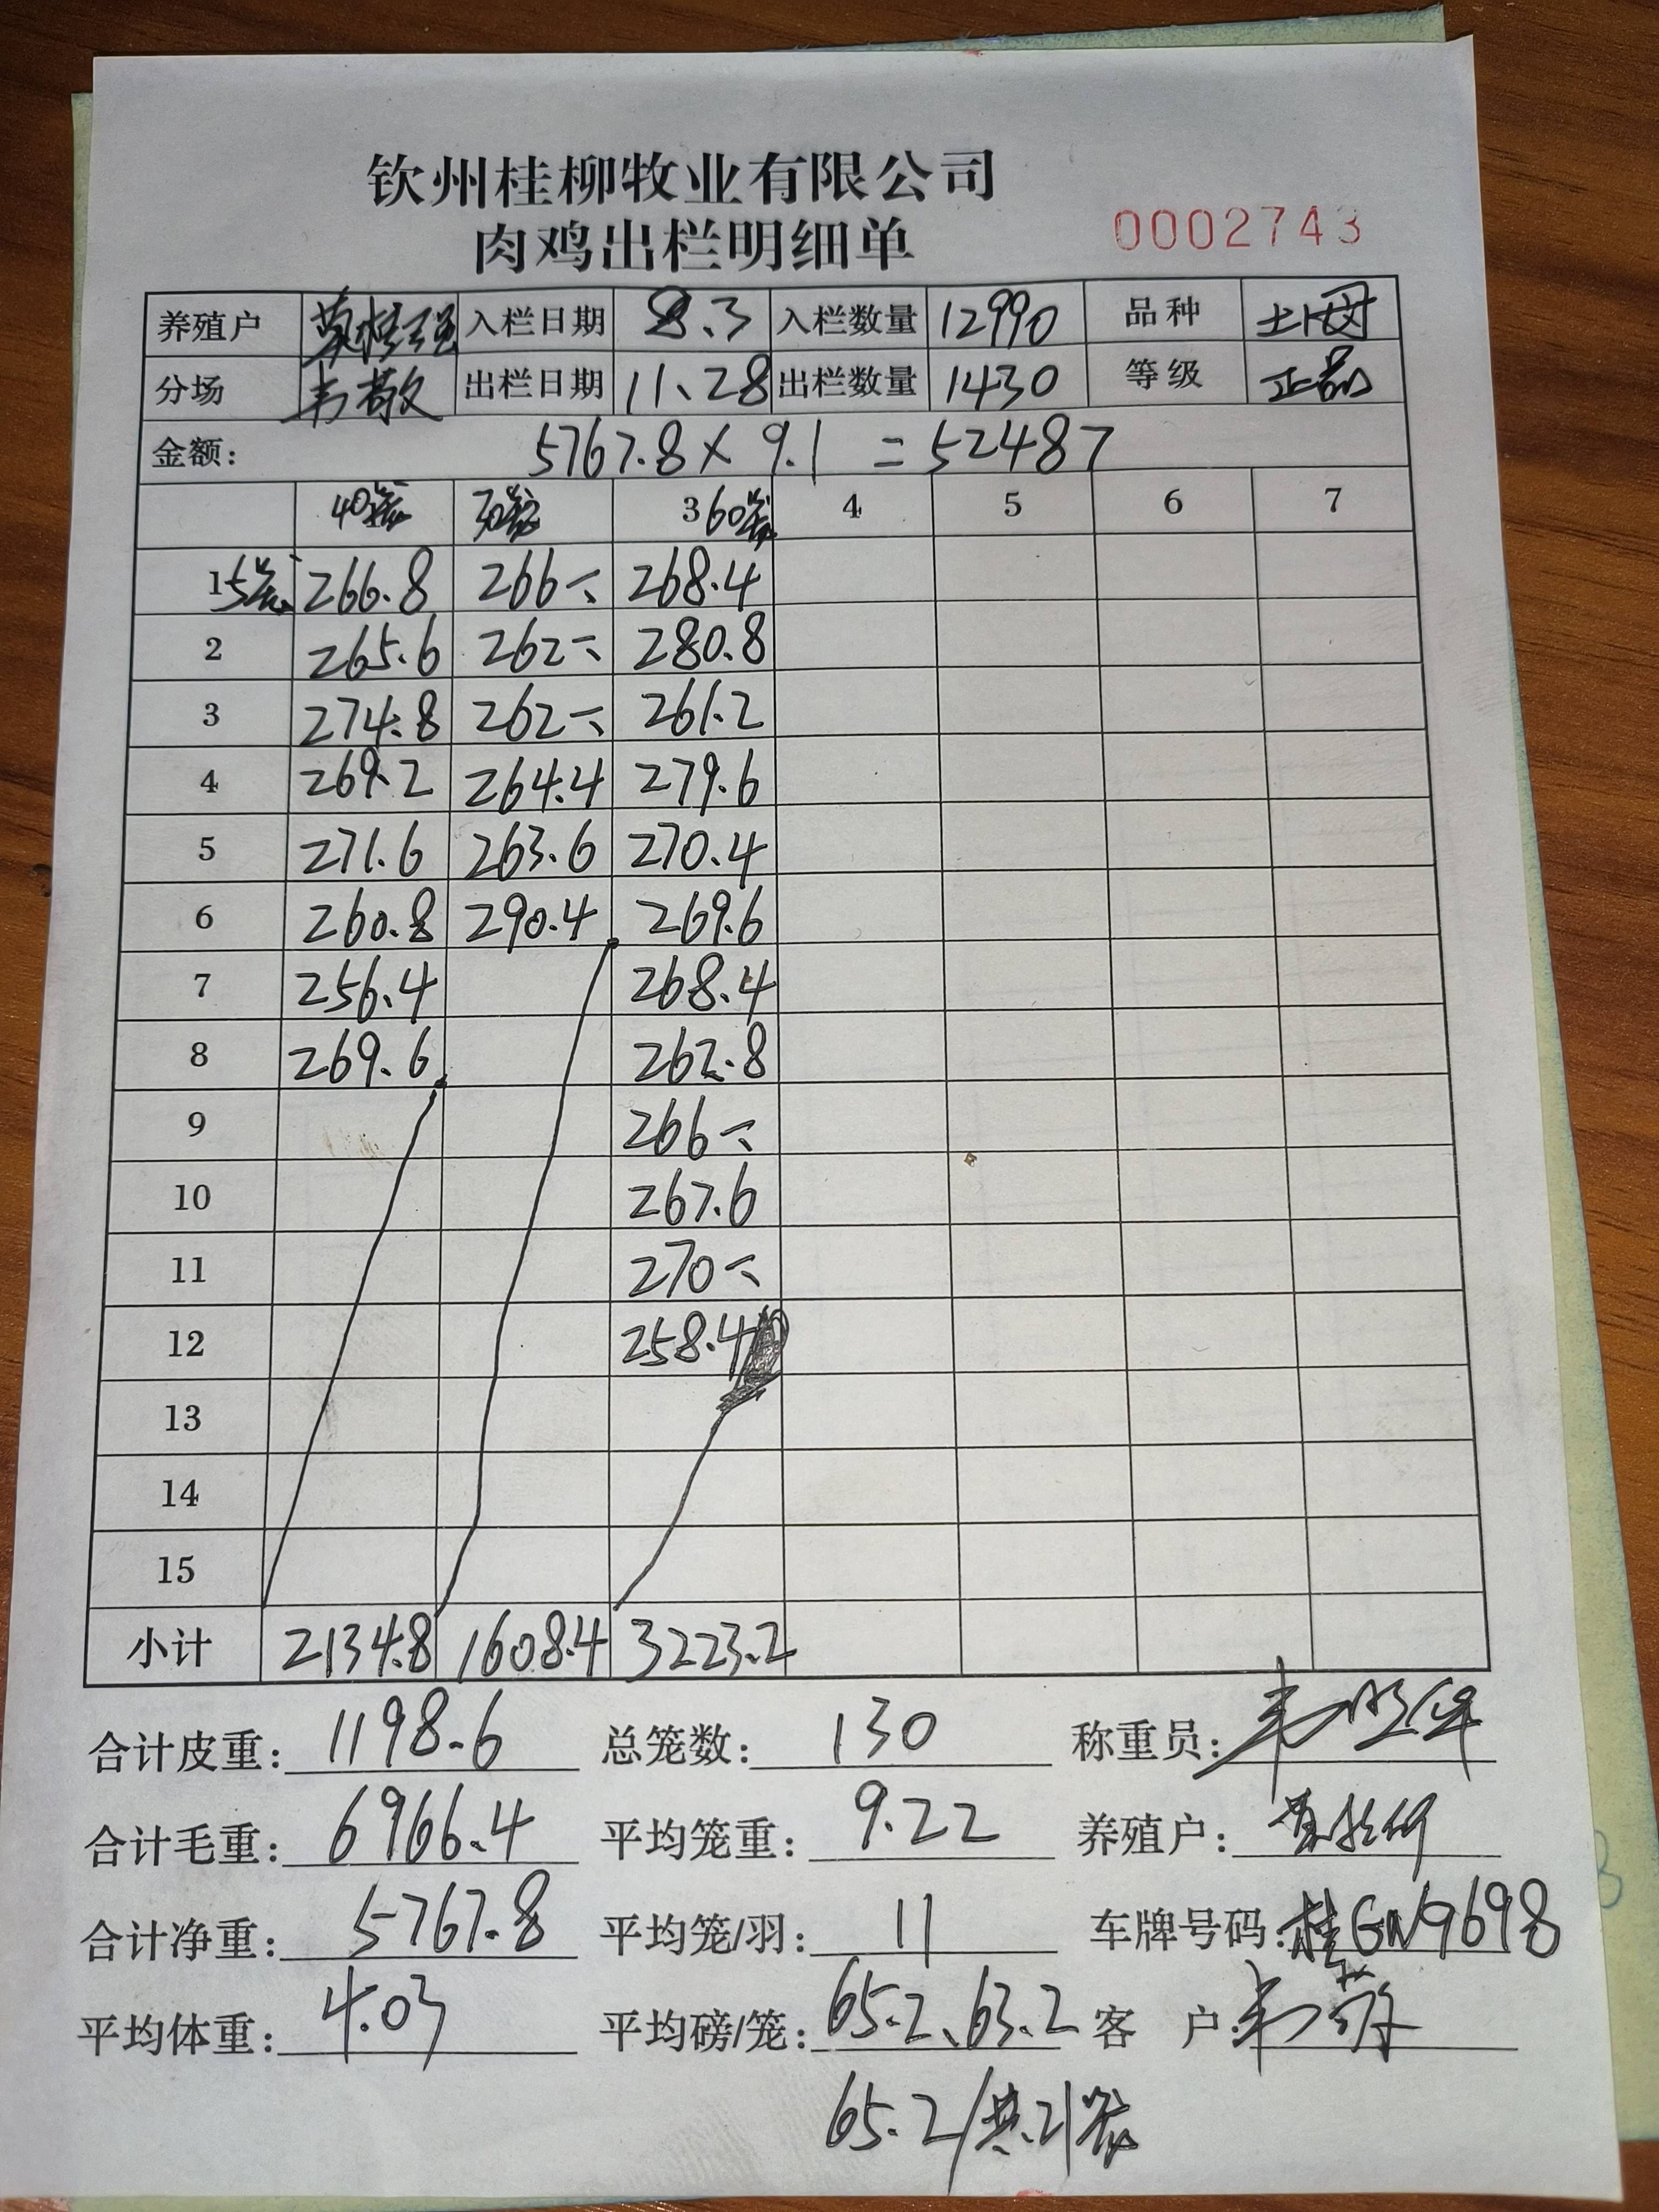 钦州桂柳牧业有限公司
肉鸡出栏明细单 0002743
养殖户 入栏日期 8.3 入栏数量 12990 品种
分场 韦敬 出栏日期 11、28 出栏数量 1430 等级 正品
金额: 5767.8×9.1=52487
40笼 30笼 3 60笼 4 5 6 7
1 5笼 266.8 266 268.4
2 265.6 262 280.8
3 274.8 262 261.2
4 269.2 264.4 279.6
5 271.6 263.6 270.4
6 260.8 290.4 269.6
7 256.4 268.4
8 269.6 262.8
9 266
10 267.6
11 270
12 258.4
13
14
15
小计 2134.8 1608.4 3223.2
合计皮重: 1198.6 总笼数: 130 称重员:
合计毛重: 6966.4 平均笼重: 9.22 养殖户:
合计净重: 5767.8 平均笼/羽: 11 车牌号码: 桂GN9698
平均体重: 4.03 平均磅/笼: 65.2、63.2 客 户:
65.2/共21笼